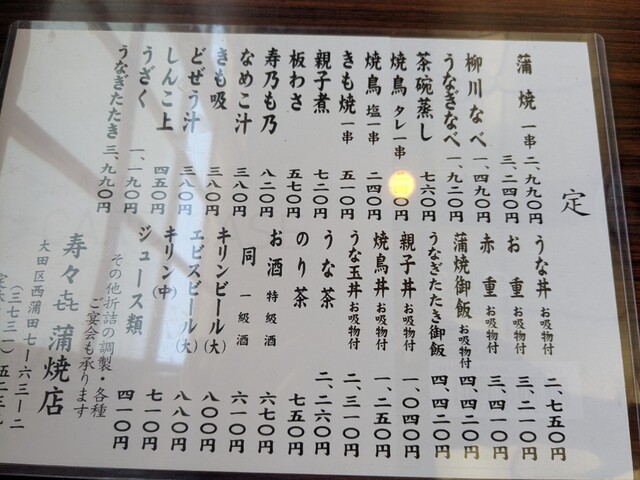 定
蒲焼 一串 二、九九〇円
三、二四〇円
柳川なべ 一、四九〇円
うなぎなべ 一、九二〇円
茶碗蒸し 七六〇円
焼鳥 タレ一串 〇円
焼鳥 塩一串 二四〇円
きも焼 一串 五一〇円
親子煮 七二〇円
板わさ 五七〇円
寿乃も乃 八二〇円
なめこ汁 三八〇円
きも吸 三八〇円
どぜう汁 三八〇円
しんこ上 四五〇円
うざく 一、一九〇円
うなぎたたき 三、九九〇円
うな丼 お吸物付 二、七五〇円
お重 お吸物付 三、二一〇円
赤重 お吸物付 三、四一〇円
蒲焼御飯 お吸物付 四、四二〇円
うなぎたたき御飯 四、四二〇円
親子丼 お吸物付 一、〇四〇円
焼鳥丼 お吸物付 一、二五〇円
うな玉丼 お吸物付 二、三一〇円
うな茶 二、二六〇円
のり茶 七五〇円
お酒 特級酒 六七〇円
同 一級酒 六一〇円
キリンビール(大) 八〇〇円
エビスビール(大) 八八〇円
キリン(中) 七一〇円
ジュース類 四一〇円
その他折詰の調製・各種
ご宴会も承ります
寿々㐂 蒲焼店
大田区西蒲田七ー六三ー二